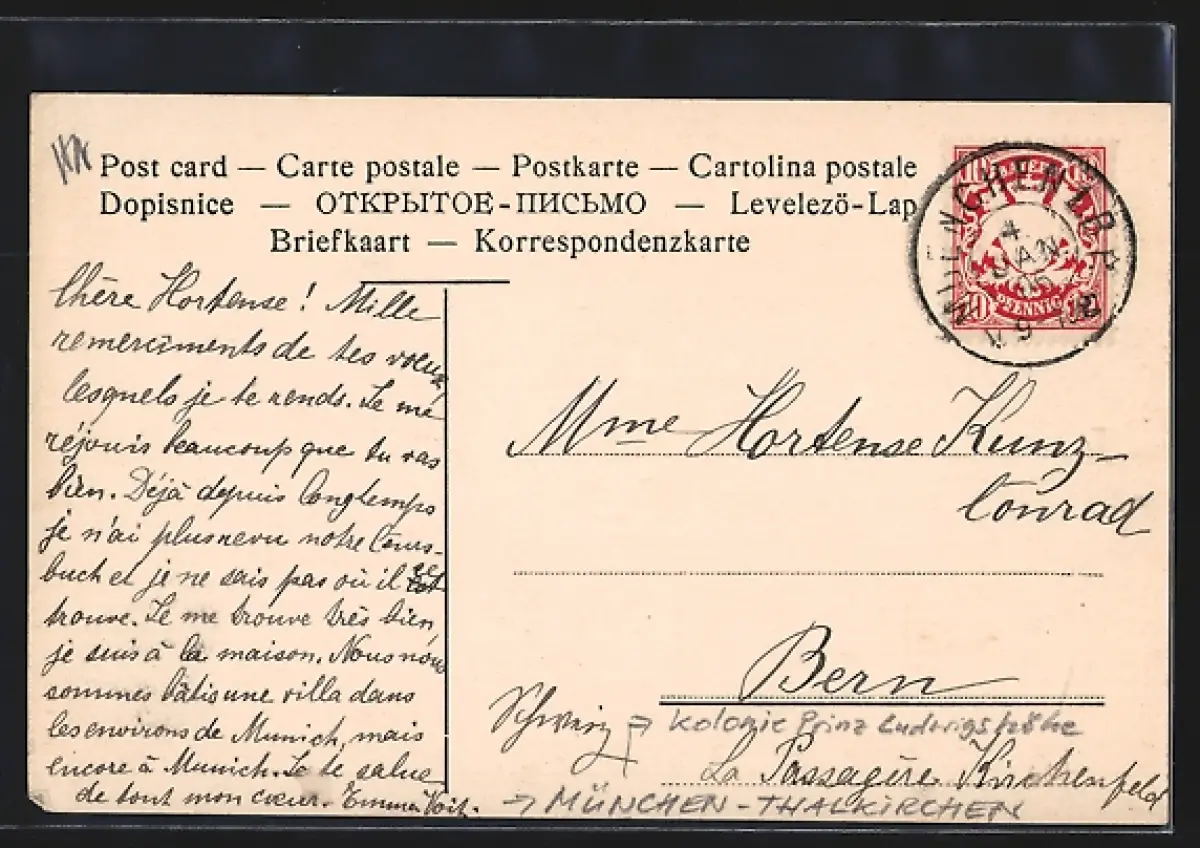 Post card — Carte postale — Postkarte — Cartolina postale
Dopisnice — ОТКРЫТОЕ-ПИСЬМО — Levelező-Lap
Briefkaart — Korrespondenzkarte
MÜNCHEN
4.
JAN.
PFENNIG
10
Chère Hortense! Mille
remerciments de tes vœux,
lesquels je te rends. Je me
réjouis beaucoup que tu vas
bien. Déjà depuis longtemps
je n'ai plus revu notre Cours-
buch et je ne sais pas où il se
trouve. Je me trouve très bien,
je suis à la maison. Nous nous
sommes bâtis une villa dans
les environs de Munich, mais
encore à Munich. Je te salue
de tout mon cœur. Emma Voit.
Mme Hortense Kunz-
Conrad
Bern
Schweiz → Kolonie Prinz Ludwigshöhe
La Passagère Kirchenfeld
→ MÜNCHEN - THALKIRCHEN